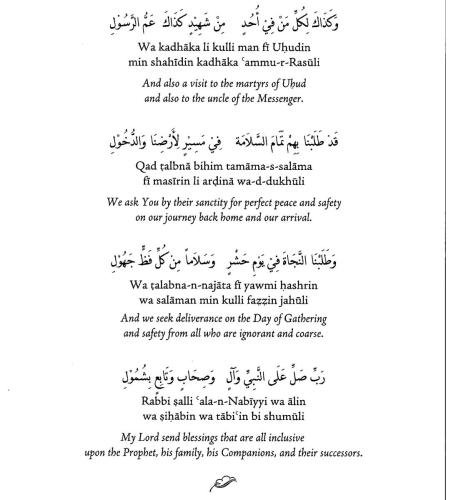 وَكَذَاكَ لِكُلِّ مَنْ فِيْ أُحُدٍ مِنْ شَهِيْدٍ كَذَاكَ عَمُّ الرَّسُوْلِ
Wa kadhāka li kulli man fī Uḥudin
min shahīdin kadhāka ʿammu-r-Rasūli
And also a visit to the martyrs of Uḥud
and also to the uncle of the Messenger.
قَدْ طَلَبْنَا بِهِمْ تَمَامَ السَّلَامَة فِيْ مَسِيْرٍ لِأَرْضِنَا وَالدُّخُوْلِ
Qad ṭalbnā bihim tamāma-s-salāma
fī masīrin li arḍinā wa-d-dukhūli
We ask You by their sanctity for perfect peace and safety
on our journey back home and our arrival.
وَطَلَبْنَا النَّجَاةَ فِيْ يَوْمِ حَشْرٍ وَسَلَاماً مِنْ كُلِّ فَظٍّ جَهُوْلِ
Wa ṭalabna-n-najāta fī yawmi ḥashrin
wa salāman min kulli fazzin jahūli
And we seek deliverance on the Day of Gathering
and safety from all who are ignorant and coarse.
رَبِّ صَلِّ عَلَى النَّبِيِّ وَآلٍ وَصِحَابٍ وَتَابِعٍ بِشُمُوْلِ
Rabbi ṣalli ʿala-n-Nabīyyi wa ālin
wa ṣiḥābin wa tābiʿin bi shumūli
My Lord send blessings that are all inclusive
upon the Prophet, his family, his Companions, and their successors.